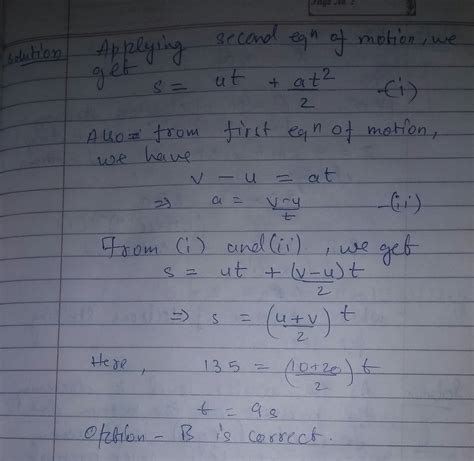 Page No. 1
Solution Applying second eqn of motion, we
get
s = ut + at²/2 -(i)
Also = from first eqn of motion,
we have
v - u = at
⇒ a = v-u/t -(ii)
From (i) and (ii), we get
s = ut + (v-u)t/2
⇒ s = (u+v/2) t
Here, 135 = (10+20/2) t
t = 9s
Option - B is correct.